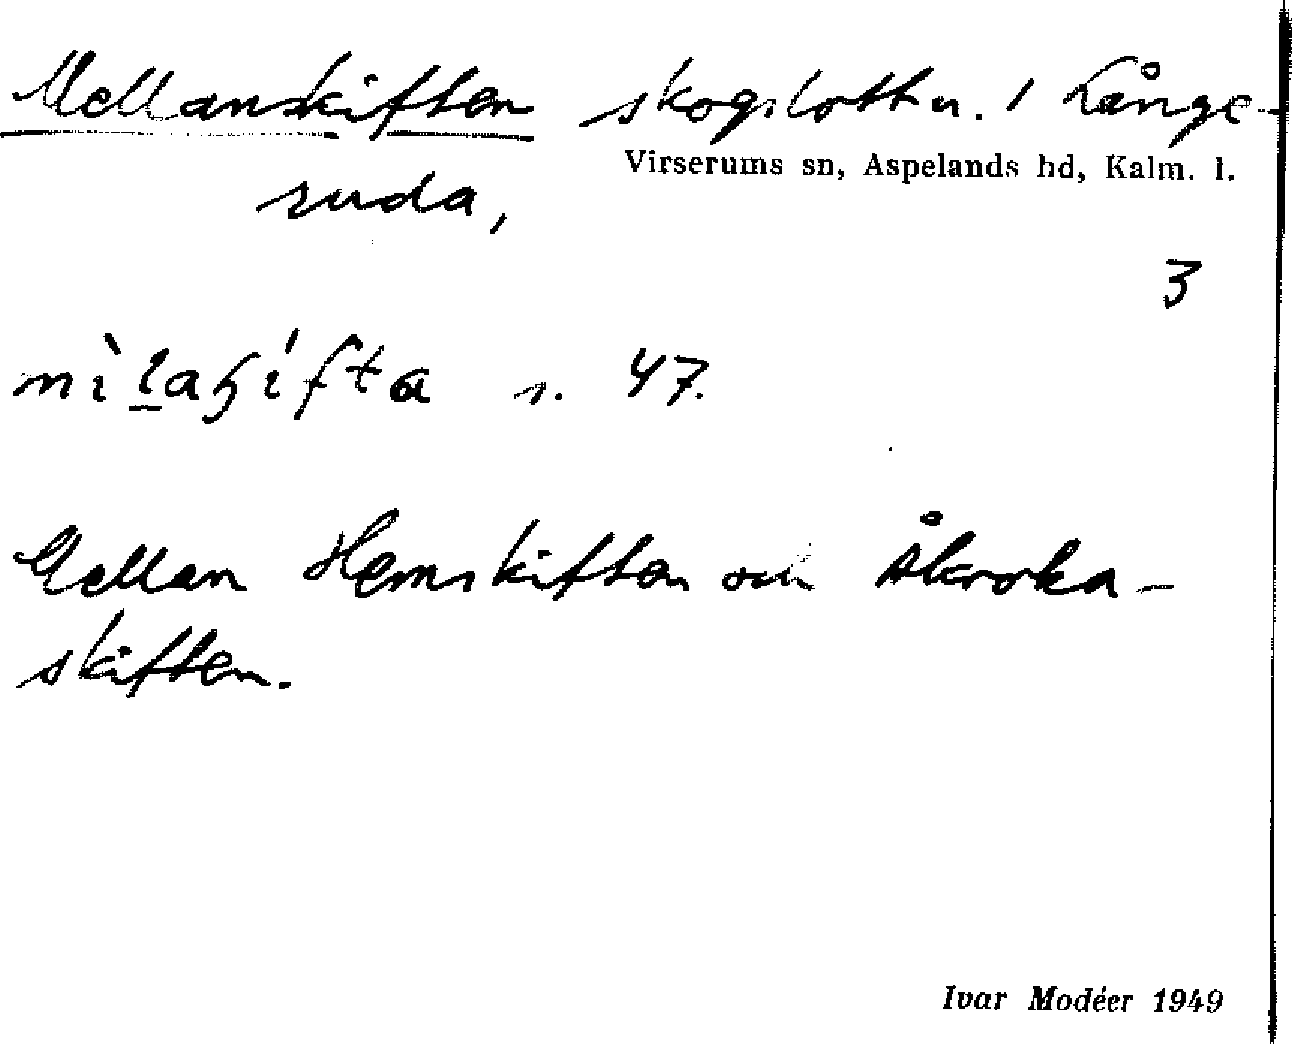 Mellanskiften skogslotter. / Långe-
Virserums sn, Aspelands hd, Kalm. l.
ruda,
3
mìlaꞕífta s. 47.
Mellan Hemskiften och Åkroka-
skiften.
Ivar Modéer 1949